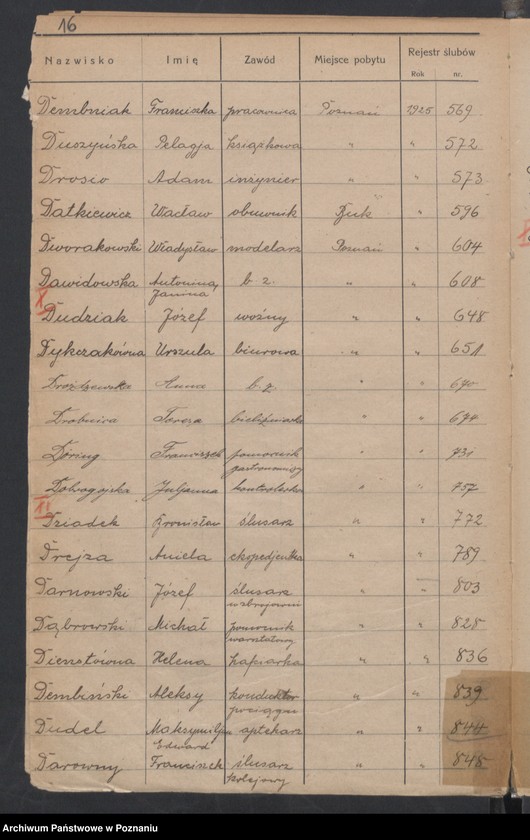 16
Nazwisko Imię Zawód Miejsce pobytu Rejestr ślubów
Rok nr.
Dembniak Franciszka pracownica Poznań 1925 569
Duszyńska Pelagja książkowa " " 572
Drosio Adam inżynier " " 573
Datkiewicz Wacław obuwnik Buk " 596
Dworakowski Władysław modelarz Poznań " 604
Dawidowska Antonina, b. z. " " 608
Janina
X
Dudziak Józef woźny " " 648
Dykczakówna Urszula biurowa " " 651
Drożdżewska Anna b. z. " " 670
Drobnica Teresa " " 674
Döring Franciszek pomocnik " " 731
gastronomiczny
Julianna kontrolerka " " 757
XI
Dziadek Bronisław ślusarz " " 772
Drejza Aniela ekspedjentka " " 789
Darnowski Józef ślusarz " " 803
w zbrojowni
Dąbrowski Michał pomocnik " " 828
warsztatowy
Dienstówna Helena hafciarka " " 836
Dembiński Aleksy konduktor " " 839
pociągu
Dudel Maksymiljan aptekarz " " 844
Edward
Darowny Franciszek ślusarz " " 848
kolejowy
Archiwum Państwowe w Poznaniu